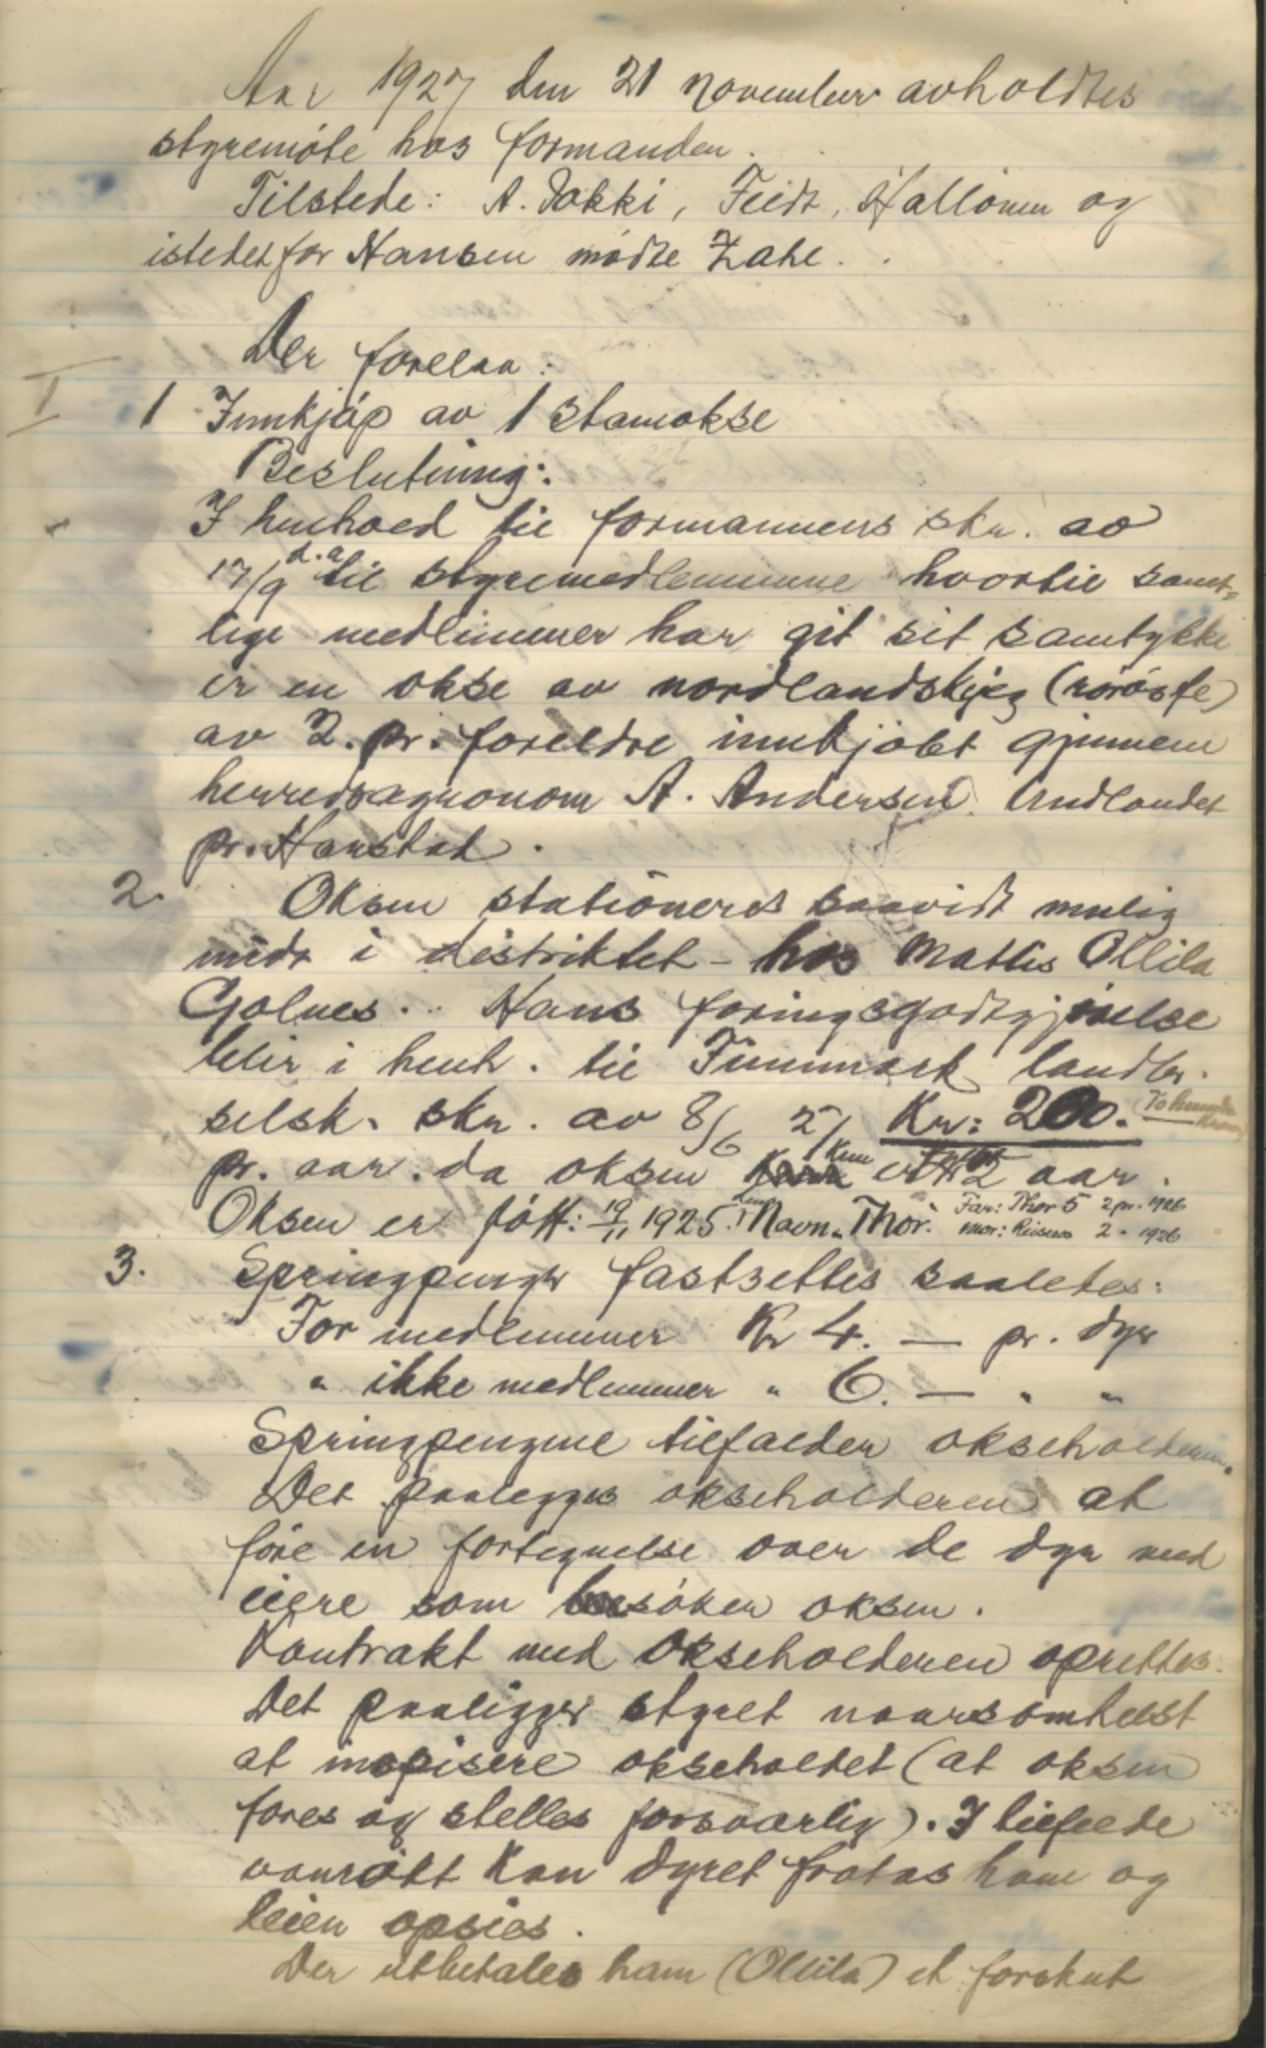 Aar 1927 den 21 november avholdtes
styremøte hos formanden.
Tilstede: A. Dokki, Feidt, Hallonen og
istedetfor Hansen mødte Zahl.
Der forelaa:
I
1 Innkjøp av 1 stamokse
Beslutning:
I henhold til formannens skr. av
17/9 d.a. til styremedlemmene hvortil samt-
lige medlemmer har git sit samtykke
er en okse av nordlandskjeg (rørosfe)
av 2. pr. foreldre innkjøbt gjennem
herredsagronom A. Andersen Andlandet
pr. Harstad.
2. Oksen stationeres saavidt mulig
midt i distriktet - hos Mattis Ollila
Golnes. Hans foringsgodtgjørelse
blir i henh. til Finnmark landbr.
selsk. skr. av 8/6 27 Kr: 200. (To hundre kroner)
pr. aar. da oksen kun er 2 aar.
Oksen er født: 19/11 1925. Navn "Thor". Far: Thor 5 2 pr. 1926
mor: 2 - 1926
3. Springpenger fastsettes saaledes:
For medlemmer Kr 4. — pr. dyr
" ikke medlemmer " 6. — " "
Springpengene tilfalder okseholderen.
Det paalegges okseholderen at
føre en fortegnelse over de dyr med
eiere som besøker oksen.
Kontrakt med okseholderen oprettes.
Det paaligger styret naarsomhelst
at inspisere okseholdet (at oksen
fores og stelles forsvarlig). I tilfelde
vanrøkt kan dyret fratas ham og
leien opsies.
Der utbetales ham (Ollila) et forskut